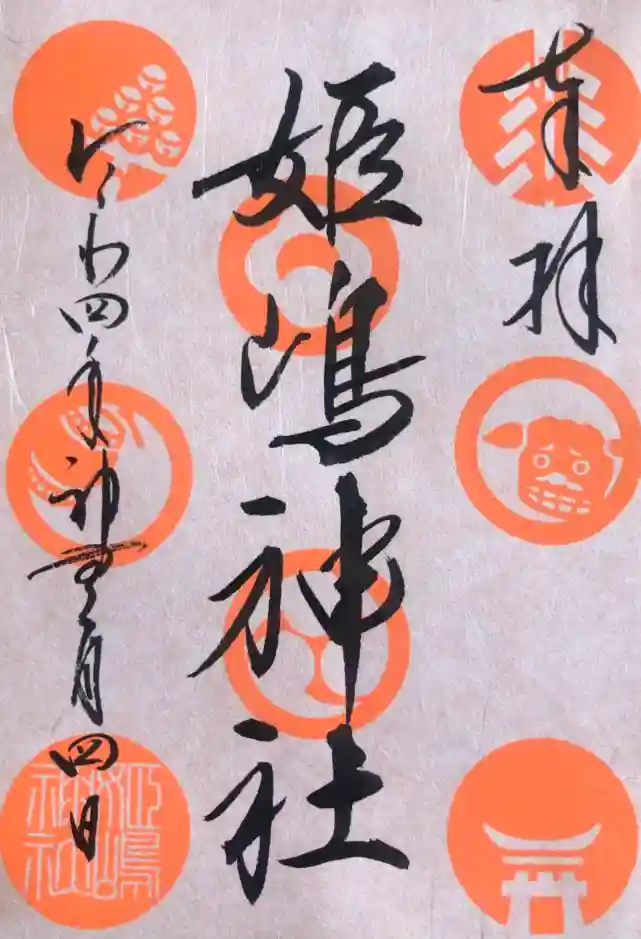 奉拝
姫嶋神社
令和四年神無月四日
姫嶋
神社